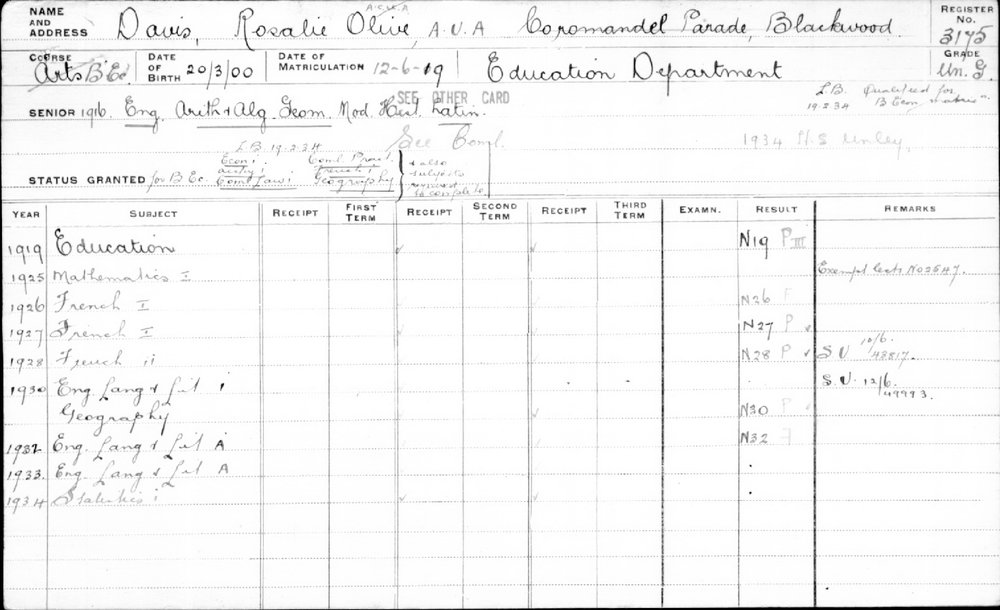 NAME AND ADDRESS Davis, Rosalie Olive, A.U.A Coromandel Parade, Blackwood. REGISTER No. 3175
A.C.U.A
COURSE Arts B Ec DATE OF BIRTH 20/3/00 DATE OF MATRICULATION 12-6-19 Education Department GRADE Un. G.
SEE OTHER CARD
L.B. Qualified for
19.2.34 B Econ, matric".
SENIOR 1916. Eng. Arith & Alg. Geom. Mod. Hist. Latin.
See Coml. 1934 H.S Unley,
L.B. 19.2.34
STATUS GRANTED for B Ec. Econ i. Coml. Pract. & also
French i subjects
Coml Law i Geography to complete.
YEAR SUBJECT RECEIPT FIRST TERM RECEIPT SECOND TERM RECEIPT THIRD TERM EXAMN. RESULT REMARKS
1919 Education N19 P III
1925 Mathematics I Exempt lects No 2547.
1926 French I N26 F
1927 French I N27 P
1928 French ii N28 P S.V. 10/6. 48817.
1930 Eng Lang & Lit i S.V. 12/6. 49993.
Geography N30 P
1932 Eng. Lang & Lit A N32 F
1933 Eng. Lang & Lit A
1934 Statistics i